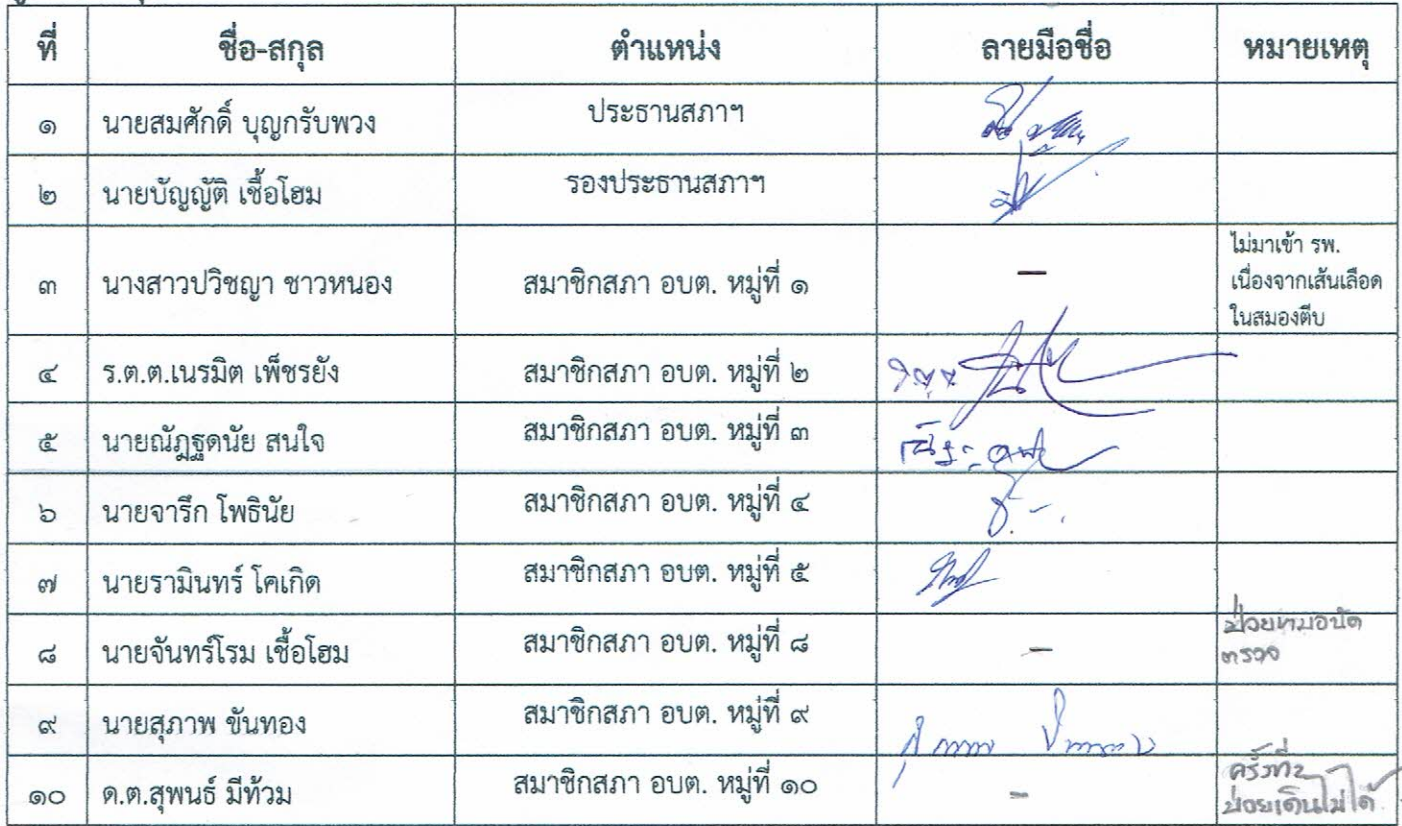 ที่ ชื่อ-สกุล ตำแหน่ง ลายมือชื่อ หมายเหตุ
๑ นายสมศักดิ์ บุญกรับพวง ประธานสภาฯ
๒ นายบัญญัติ เชื้อโฮม รองประธานสภาฯ
๓ นางสาวปวิชญา ชาวหนอง สมาชิกสภา อบต. หมู่ที่ ๑ – ไม่มาเข้า รพ.
เนื่องจากเส้นเลือด
ในสมองตีบ
๔ ร.ต.ต.เนรมิต เพ็ชรยัง สมาชิกสภา อบต. หมู่ที่ ๒
๕ นายณัฏฐดนัย สนใจ สมาชิกสภา อบต. หมู่ที่ ๓
๖ นายจารึก โพธินัย สมาชิกสภา อบต. หมู่ที่ ๔
๗ นายรามินทร์ โคเกิด สมาชิกสภา อบต. หมู่ที่ ๕
๘ นายจันทร์โรม เชื้อโฮม สมาชิกสภา อบต. หมู่ที่ ๘ – ป่วยหมอนัด
ตรวจ
๙ นายสุภาพ ขันทอง สมาชิกสภา อบต. หมู่ที่ ๙
๑๐ ด.ต.สุพนธ์ มีท้วม สมาชิกสภา อบต. หมู่ที่ ๑๐ – ครั้งที่2
ป่วยเดินไม่ได้